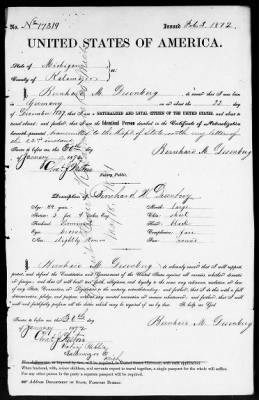 No. 17319 Issued Feb. 3, 1872
UNITED STATES OF AMERICA.
State of Michigan
County of Kalamazoo
I, Bernhard M. Greenberg
Germany 22
December 1827, that I am a NATURALIZED AND LOYAL CITIZEN OF THE UNITED STATES, and about to
travel abroad; that I am the Identical Person described in the Certificate of Naturalization
herewith presented, transmitted to the Dept of State with my letter of
the 22nd instant
Sworn to before me, this 30th day
January 1872 Bernhard M. Greenberg
Notary Public
Description of Bernhard M. Greenberg
Age: 44 years Mouth: large
Stature: 5 feet 4 inches Eng. Chin: short
Forehead: Hair: black
Eyes: Complexion: fair
Nose: slightly Roman Face:
I, Bernhard M. Greenberg do solemnly swear that I will support,
protect, and defend the Constitution and Government of the United States against all enemies, whether domestic
or foreign; and that I will bear true faith, allegiance, and loyalty to the same, any ordinance, resolution, or law
of any State, Convention, or Legislature to the contrary notwithstanding; and further, that I do this with a full
determination, pledge, and purpose, without any mental reservation or evasion whatsoever; and further, that I
will well and faithfully perform all the duties which may be required of me by law: So help me God.
Sworn to before me, this 30th day
January 1872 Bernhard M. Greenberg
Notary Public
Kalamazoo Co
Mich
When husband, wife, minor children, and servants expect to travel together, a single passport for the whole will suffice.
For any other person in the party a separate passport will be required.
Address DEPARTMENT OF STATE, PASSPORT BUREAU.